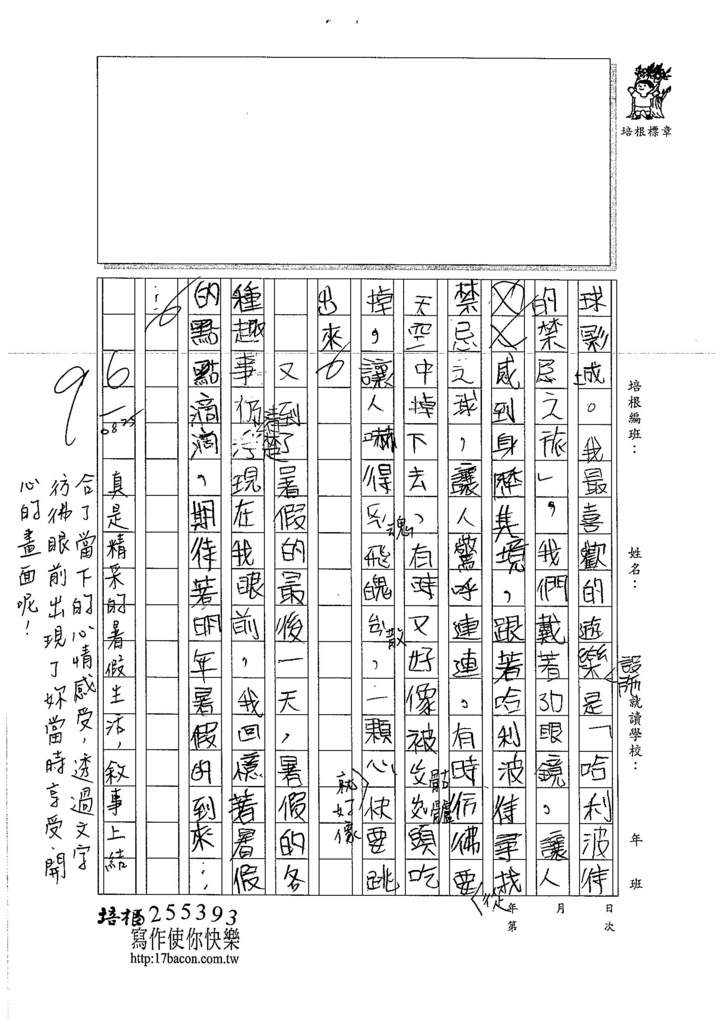 培根標章
培根編班：
姓名：
就讀學校：
年 班
年 月 日
第 次
球影城。我最喜歡的遊樂設施是「哈利波特
的禁忌之旅」，我們戴著3D眼鏡，讓人
感到身歷其境，跟著哈利波特尋找
禁忌之球，讓人驚呼連連。有時彷彿要從
天空中掉下去，有時又好像被骷髏頭吃
掉，讓人嚇得魂飛魄散，一顆心就好像快要跳
出來。
又到了暑假的最後一天，暑假的各
種趣事仍清楚浮現在我眼前，我回憶著暑假
的點點滴滴，期待著明年暑假的到來…
…。
96
0825
真是精采的暑假生活，敘事上結
合了當下的心情感受，透過文字
彷彿眼前出現了妳當時享受、開
心的畫面呢！
培根255393
寫作使你快樂
http:17bacon.com.tw